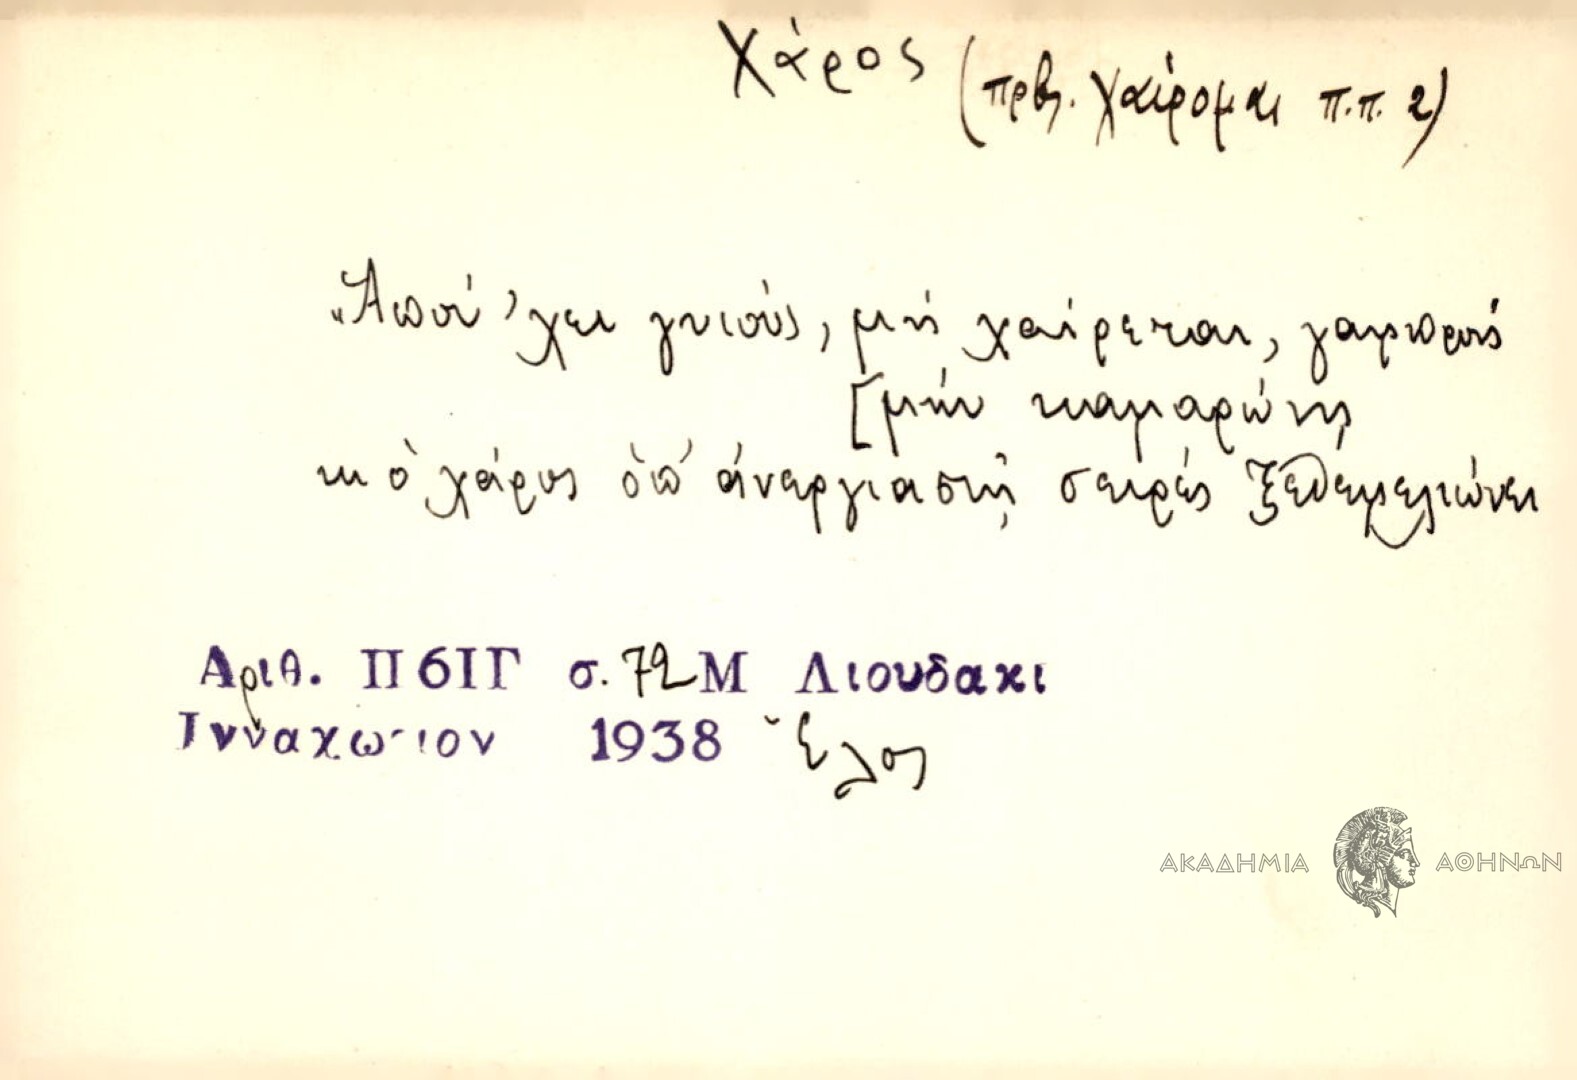 Χάρος (πρβλ. χαίρομαι π.π. 2)
"Απού 'χει γυιούς, μή χαίρεται, γαμπρούς
[μήν καμαρώνῃ
κι ὁ χάρος ὁπ' ἀνεργιαστῇ σειρές ξεθεμελιώνει
Αριθ. Π6ΙΓ σ. 72 Μ Λιουδακι
Ινναχωριον 1938 Ἕλος
ΑΚΑΔΗΜΙΑ ΑΘΗΝΩΝ